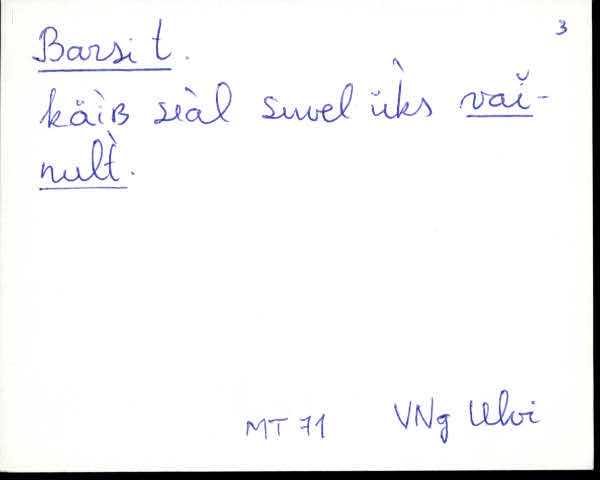 3
Barsi t.
käìʙ siàl suvel üǩs vaĭ-
nult̀.
MT 71 VNg Ulvi